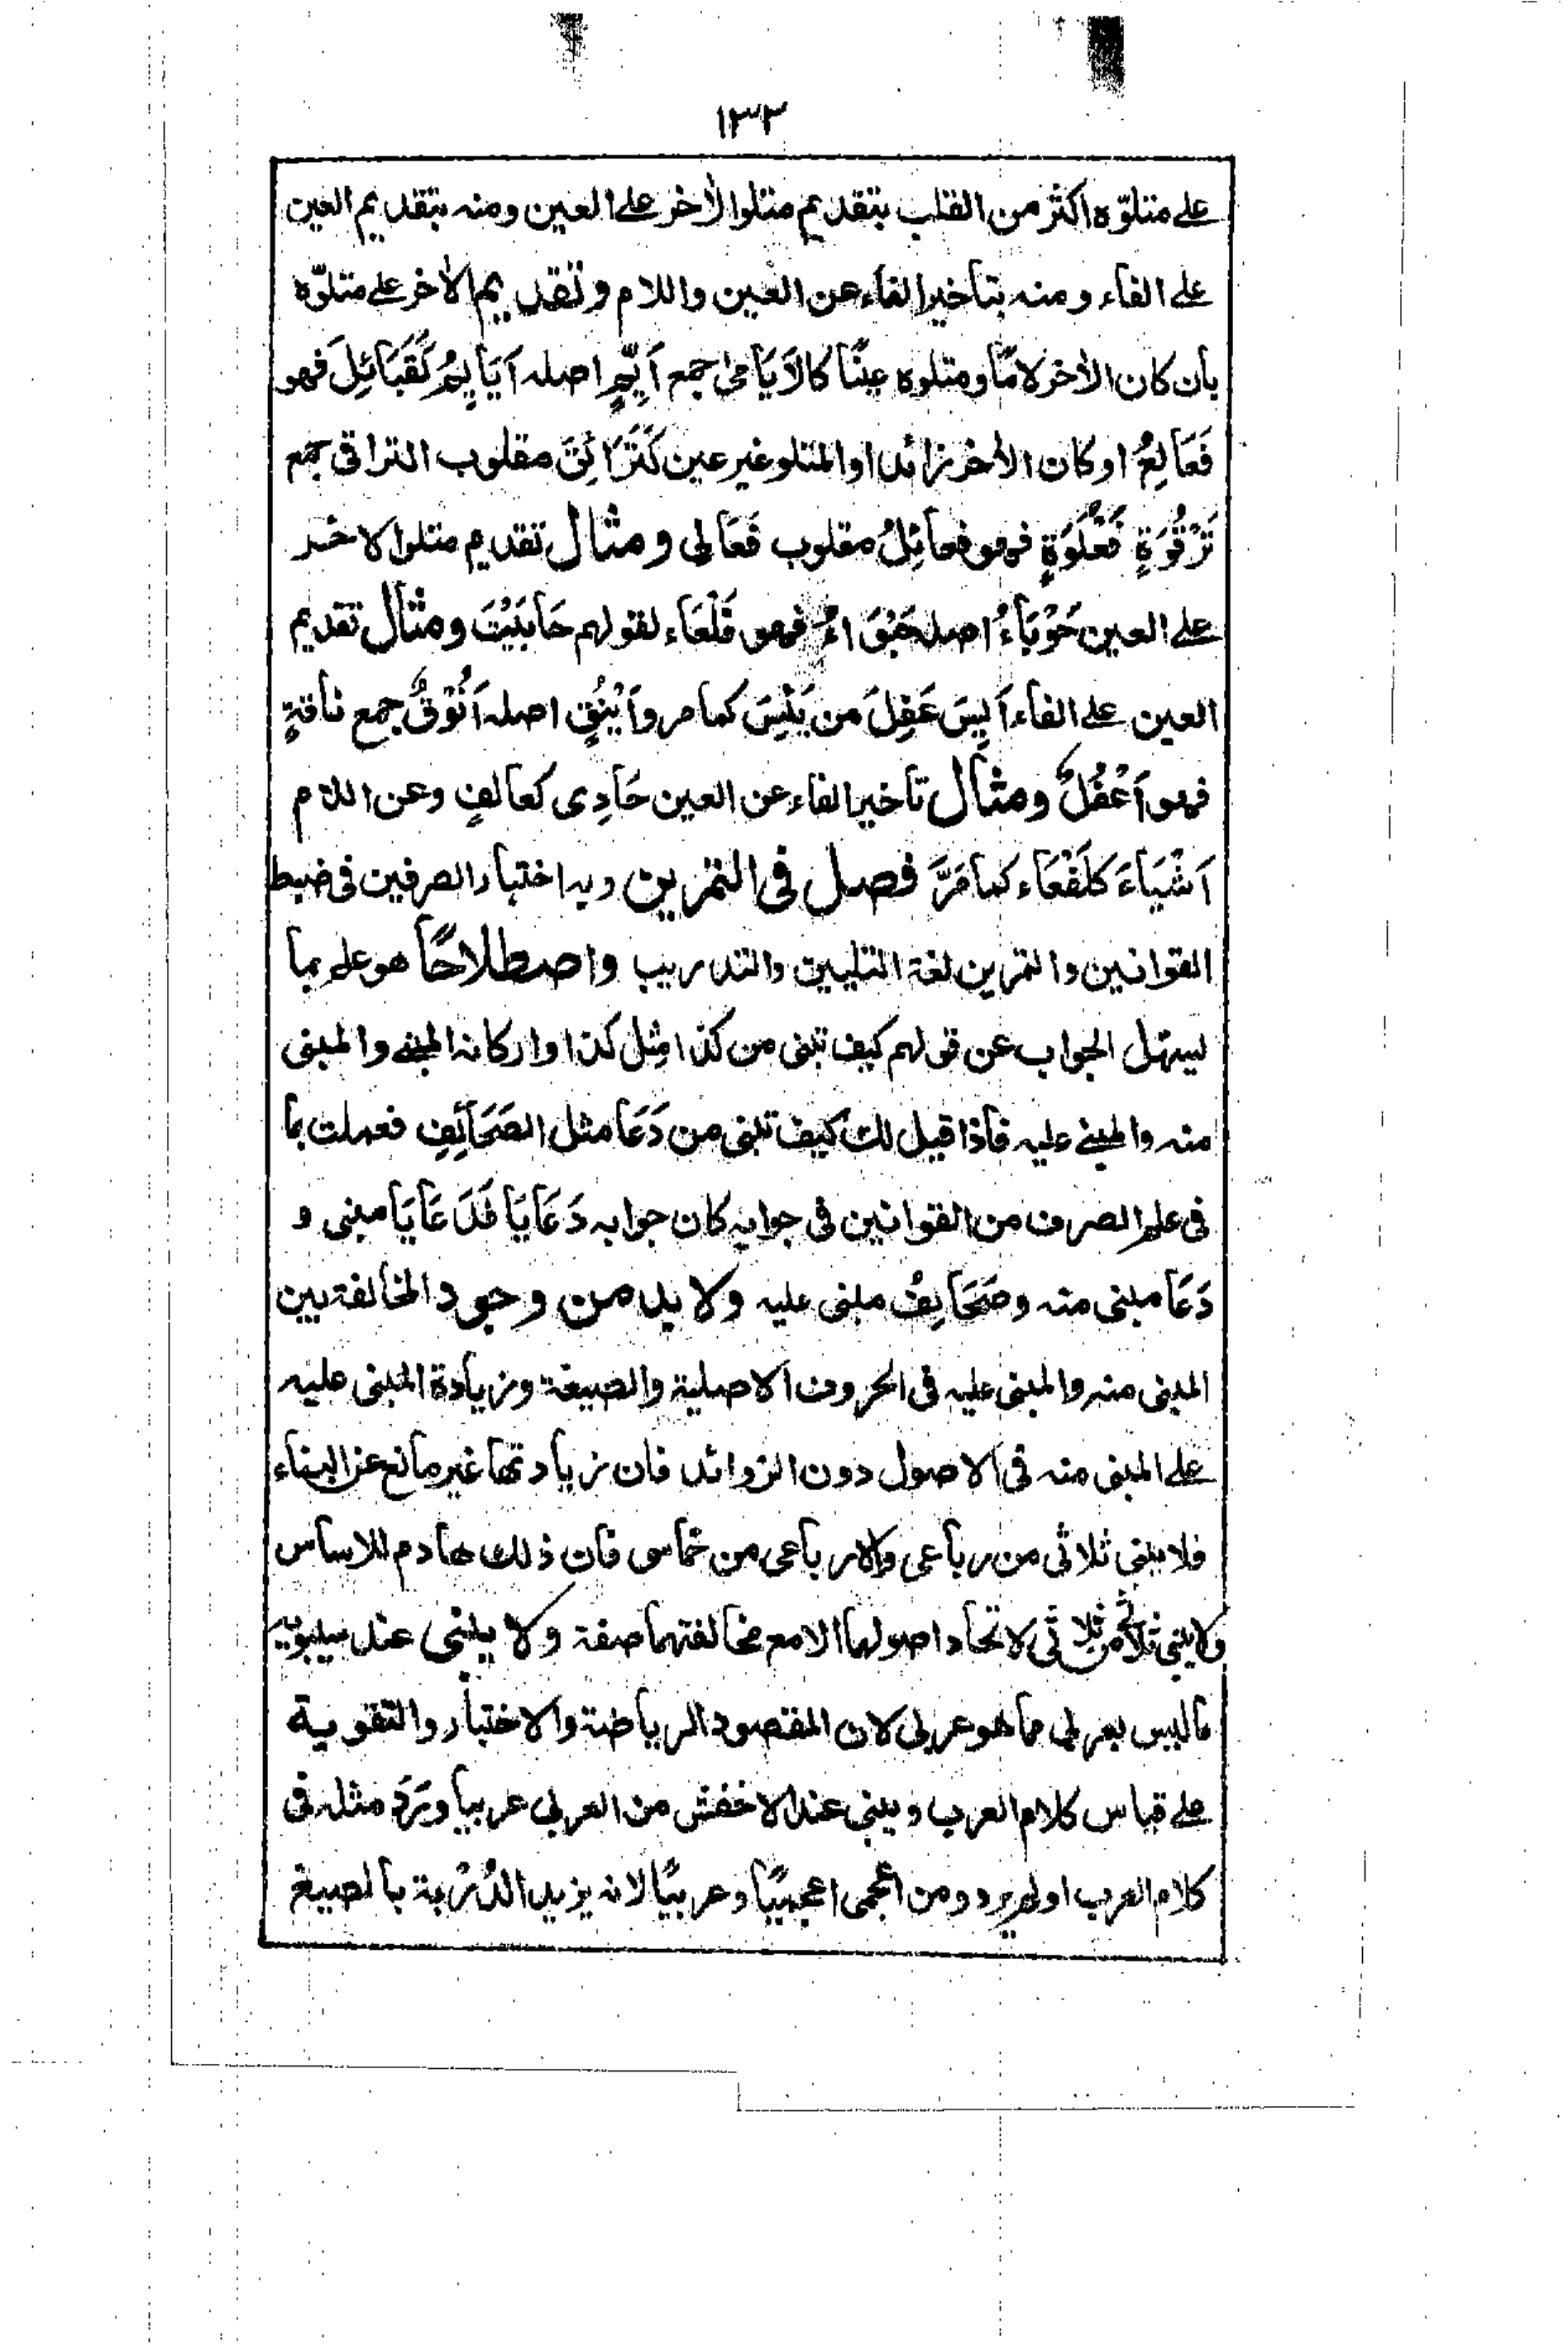 ١٣٣
على متلوّه اكثر من القلب بتقديم متلوا لأخر على العين ومنه بتقديم العين
على الفاء ومنه بتأخير الفاء عن العين واللام وتقديم الأخر على متلوّه
بان كان الأخر لامًا ومتلوه عينًا كالاَيَامى جمع اَيِّمٍ اصله اَيَايِمُ كَقَبَائِلَ فهو
فَعَالِعُ او كان الأخر زائدا والمتلو غير عين كَتَرَائِقَ مقلوب التراقى جمع
تَرْقُوَةٍ فَعْلُوَةٍ فهو فعائِلُ مقلوب فَعَالى ومثال تقديم متلوا لاخر
على العين حَوْبَاءُ اصله حَبْوَاءُ فهو فَلْعَاء لقولهم حَابَيْتَ ومثال تقديم
العين على الفاء اَيِسَ عَفِلَ من يَئِسَ كما مر واَيْنُقٍ اصله اَنْوُقٌ جمع ناقةٍ
فهو اَعْفُلٌ ومثال تأخير الفاء عن العين حَادِى كعالفٍ وعن اللام
اَشْيَاءَ كَلَفْعَاء كما مَرَّ فصل فى التمرين وبه اختبار الصرفين فى ضبط
القوانين والتمرين لغة التليين والتدريب واصطلاحًا هو علم بما
يسهل الجواب عن قولهم كيف تبنى من كذا مِثل كذا واركانه المبنى والمبنى
منه والمبنى عليه فاذا قيل لك كيف تبنى من دَعَا مثل الصَحَائِفِ فعملت بما
فى علم الصرف من القوانين فى جوابه كان جوابه دَعَايَا فَدَعَايَا مبنى و
دَعَا مبنى منه وصَحَايِفُ مبنى عليه ولا بد من وجود المخالفة بين
المبنى منه والمبنى عليه فى الحروف الاصلية والصيغة وزيادة المبنى عليه
على المبنى منه فى الاصول دون الزوائد فان زيادتها غير مانع عن البناء
فلا يبنى ثلاثى من رباعى ولا رباعى من خماسى فان ذلك هادم للاساس
ولا يبنى ثلاثى من ثلاثى لاتحاد اصولهما الا مع مخالفتهما صفة ولا يبنى عند سيبويه
ماليس بعربى مما هو عربى لان المقصود الرياضة والاختبار والتقوية
على قياس كلام العرب ويبنى عند الاخفش من العربى عربيا وَرَدَ مثله فى
كلام العرب اولم يرد ومن اعجمى اعجميًا وعربيًا لانه يزيد الدُرْبة بالصيغ